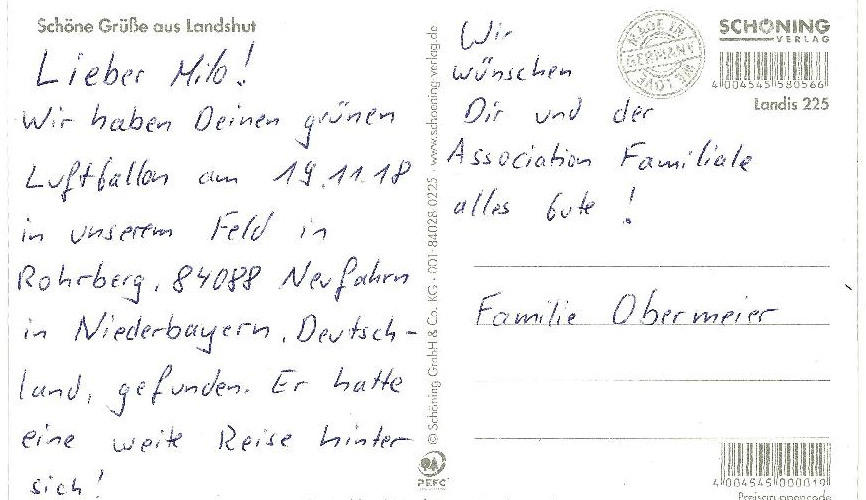 Schöne Grüße aus Landshut
Lieber Milo!
Wir haben Deinen grünen
Luftballon am 19.11.18
in unserem Feld in
Rohrberg, 84088 Neufahrn
in Niederbayern, Deutsch-
land, gefunden. Er hatte
eine weite Reise hinter
sich!
© Schöning GmbH & Co. KG · 001-84028-0225 · www.schoening-verlag.de
PEFC
Wir
wünschen
Dir und der
Association Familiale
alles Gute!
Familie Obermeier
MADE IN
GERMANY
SCHÖNING
VERLAG
4 004545 580566
Landis 225
4 004545 000019
Preisgruppencode